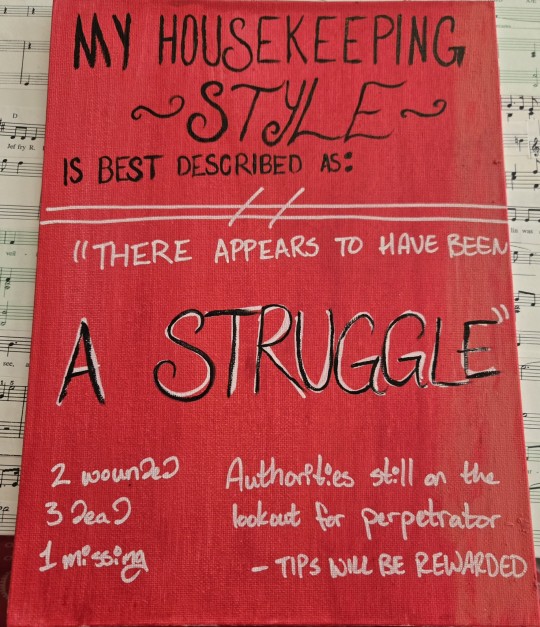 MY HOUSEKEEPING
~STYLE~
IS BEST DESCRIBED AS:
"THERE APPEARS TO HAVE BEEN
A STRUGGLE"
2 wounded
3 dead
1 missing
Authorities still on the
lookout for perpetrator
- TIPS WILL BE REWARDED
D
Jeffry R.